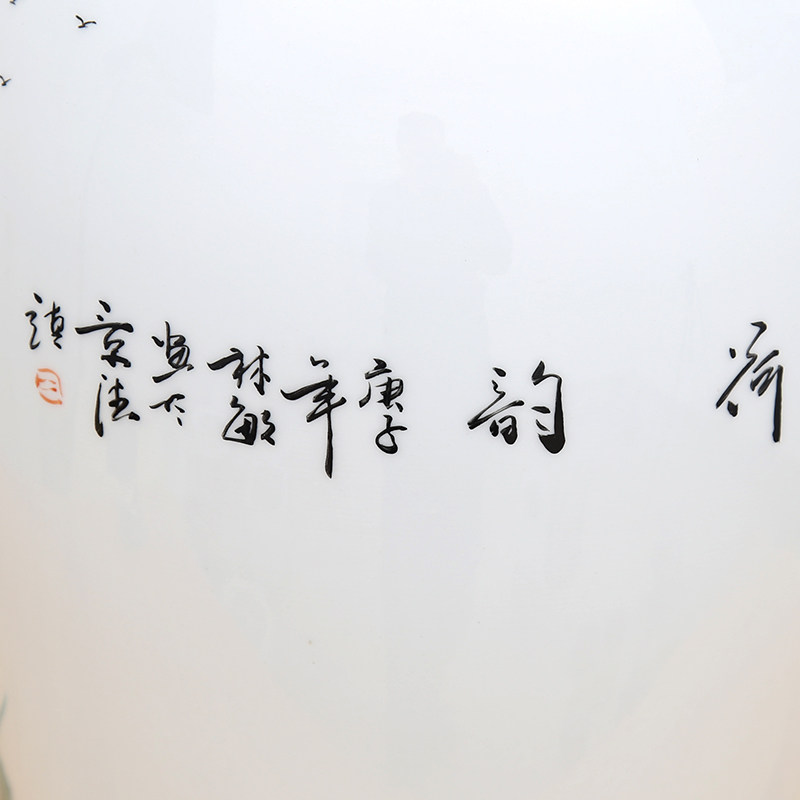 荷
韵
庚子
年
林敏
画于
景德
镇